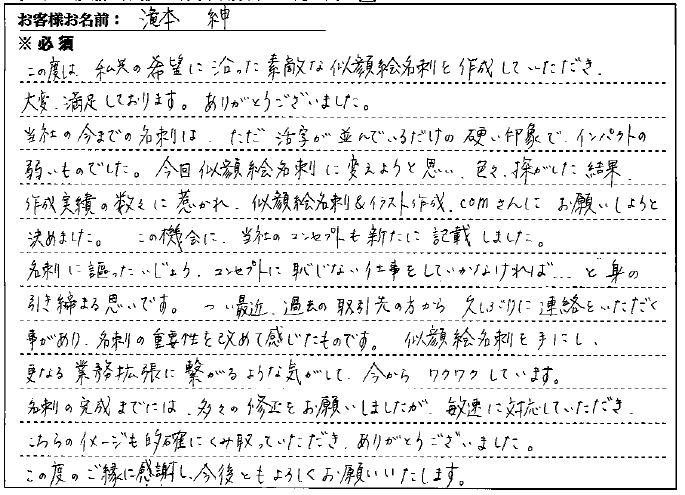 お客様お名前： 滝本 紳
※必須
この度は、私共の希望に沿った素敵な似顔絵名刺を作成していただき、
大変、満足しております。ありがとうございました。
当社の今までの名刺は、ただ活字が並んでいるだけの硬い印象で、インパクトの
弱いものでした。今回似顔絵名刺に変えようと思い、色々、探がした結果、
作成実績の数々に惹かれ、似顔絵名刺&イラスト作成.comさんに お願いしようと
決めました。 この機会に、当社のコンセプトも新たに記載しました。
名刺に謳ったいじょう、コンセプトに恥じない仕事をしていかなければ…と身の
引き締まる思いです。 つい最近、過去の取引先の方から久しぶりに連絡をいただく
事があり、名刺の重要性を改めて感じたものです。 似顔絵名刺を手にし、
更なる業務拡張に繋がるような気がして、今からワクワクしています。
名刺の完成までには、多々の修正をお願いしましたが、敏速に対応していただき、
こちらのイメージも的確にくみ取っていただき、ありがとうございました。
この度のご縁に感謝し、今後ともよろしくお願いいたします。